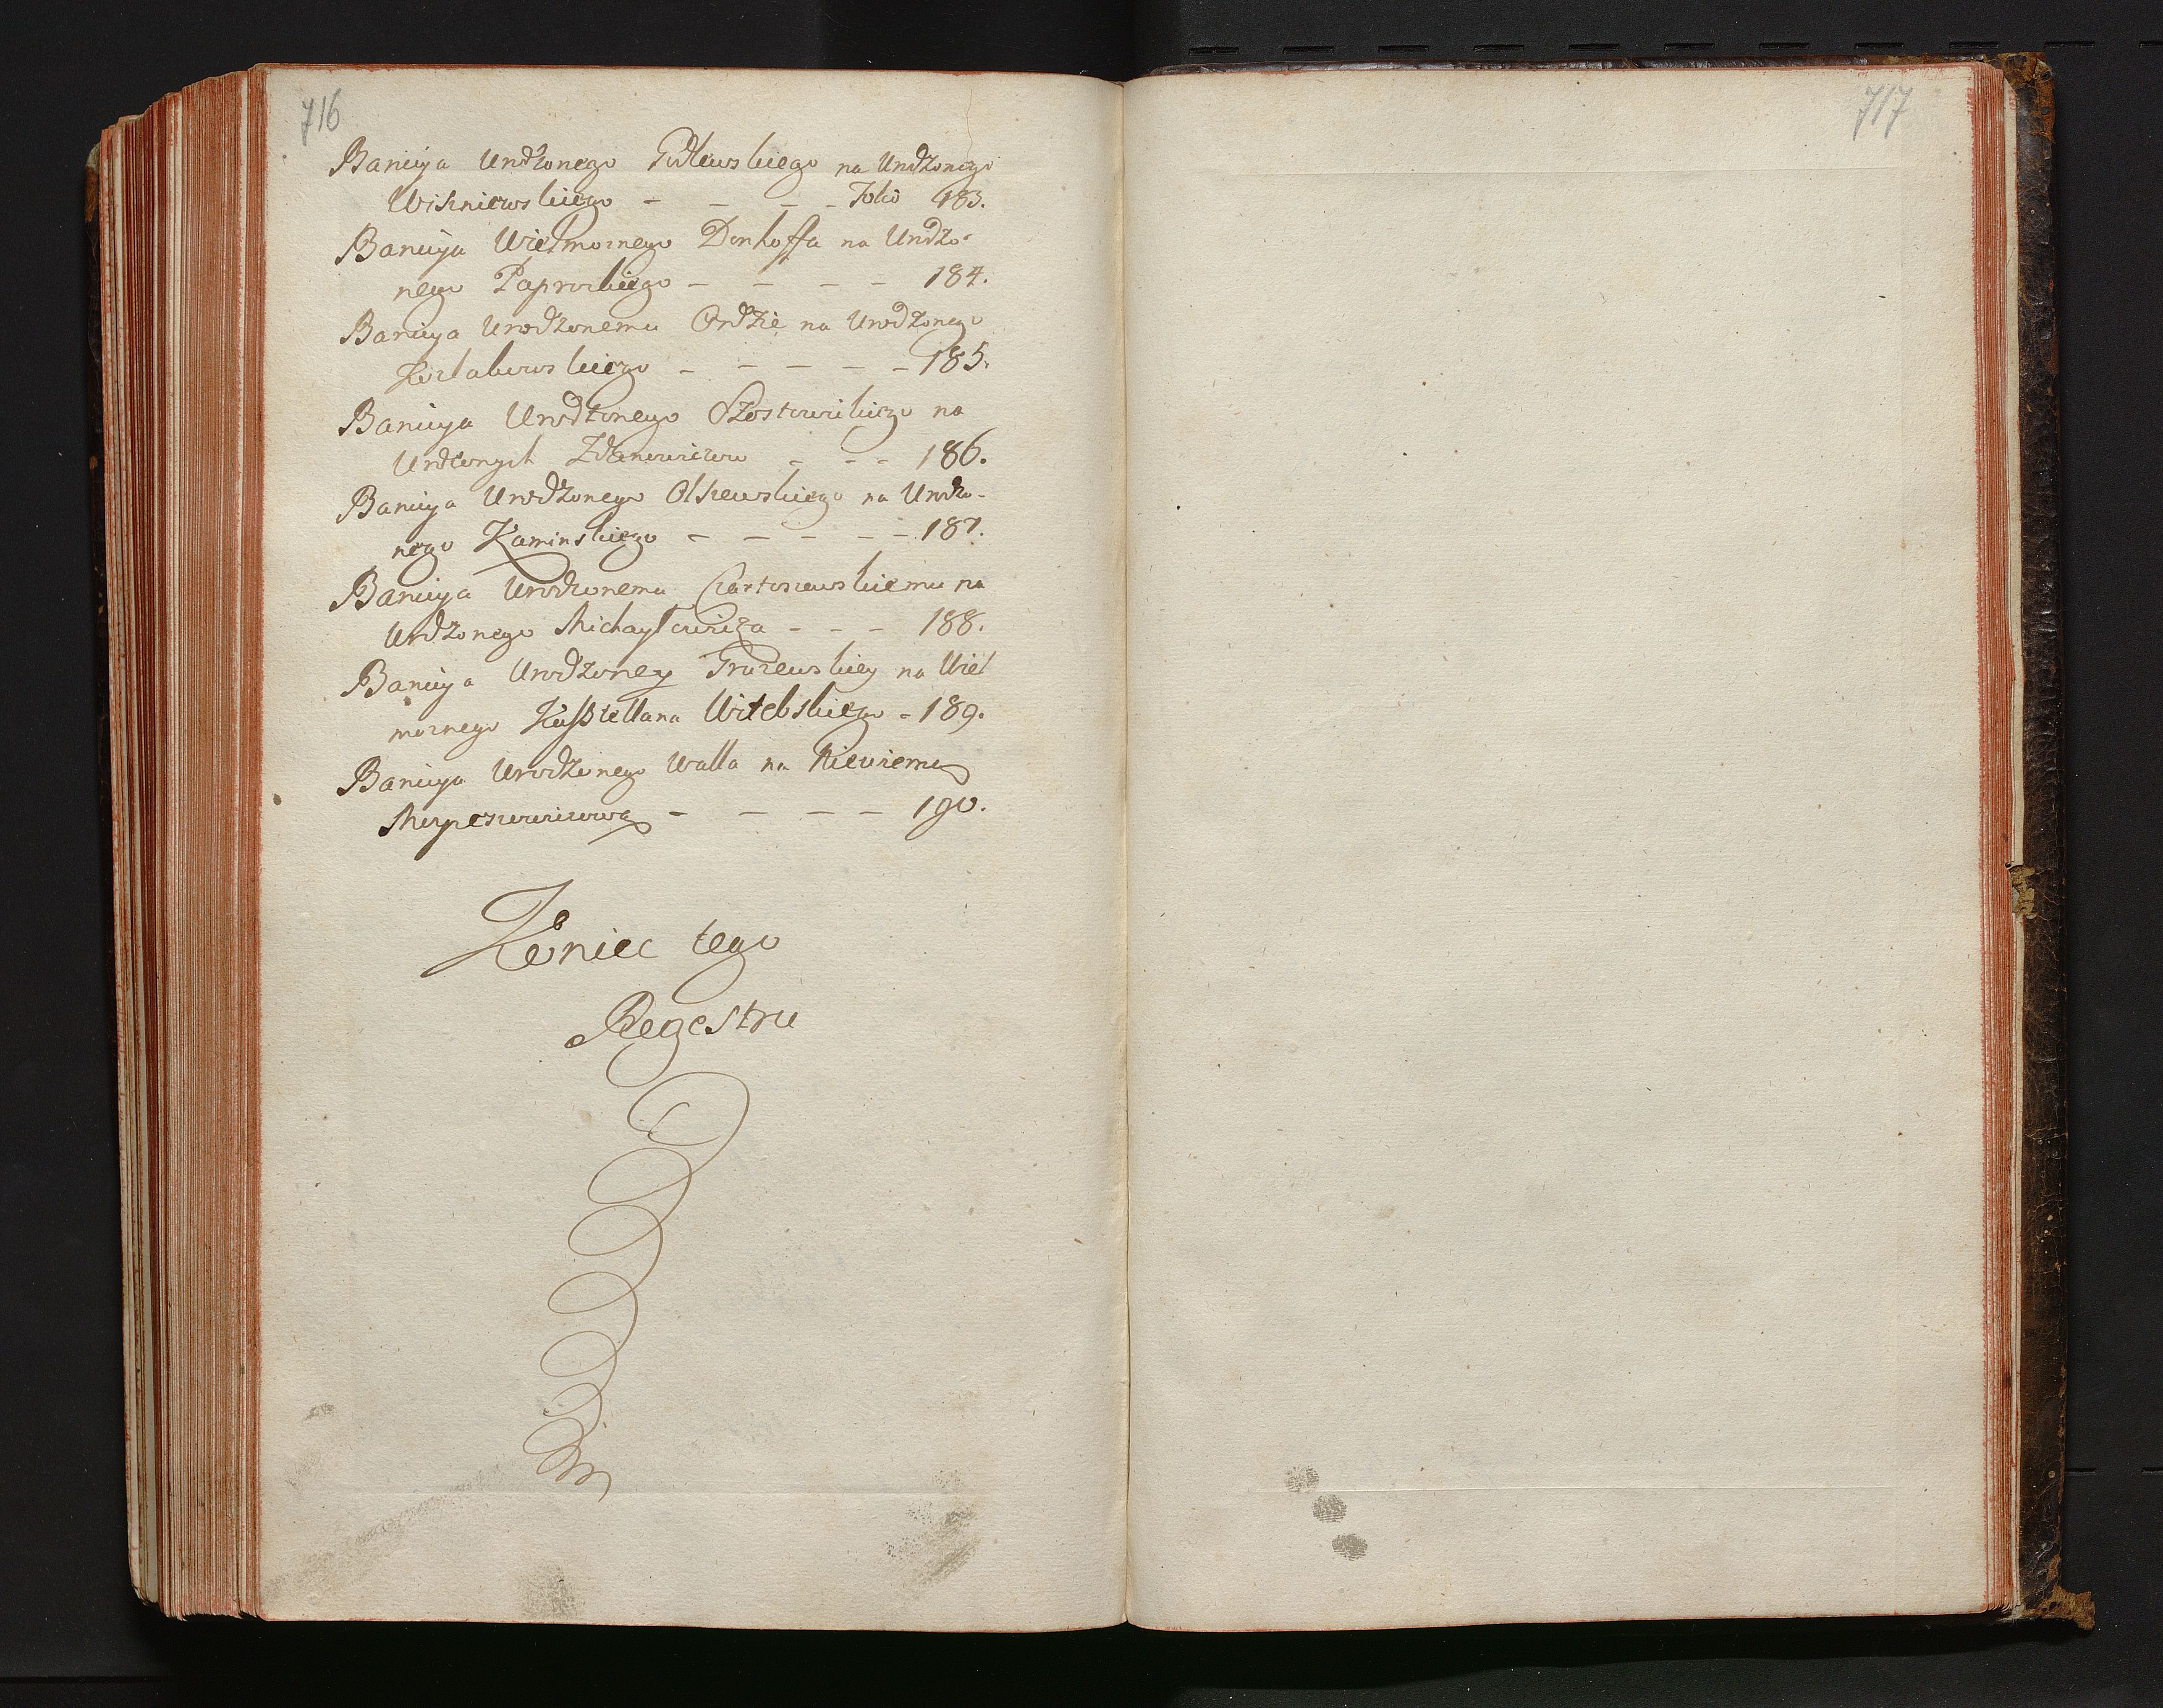 716
Banicya Urodzonego Gutowskiego na Urodzonego
Wiszniewskiego - - - - Folio 183.
Banicya Wielmożnego Donhoffa na Urodzo-
nego Paprockiego - - - - 184.
Banicya Urodzonemu Ordzie na Urodzonego
- - - - - 185.
Banicya Urodzonego Szostowickiego na
Urodzonych Zdanowiczow - - - 186.
Banicya Urodzonego Olszewskiego na Urodzo-
nego Kaminskiego - - - - - 187.
Banicya Urodzonemu Czartoszewskiemu na
Urodzonego Michayłowicza - - - 188.
Banicya Urodzoney Gruzewskiey na Wiel
możnego Kasztellana Witebskiego - 189.
Banicya Urodzonego Walla na Niewiernego
- - - - 190.
Koniec tego
Regestru
717